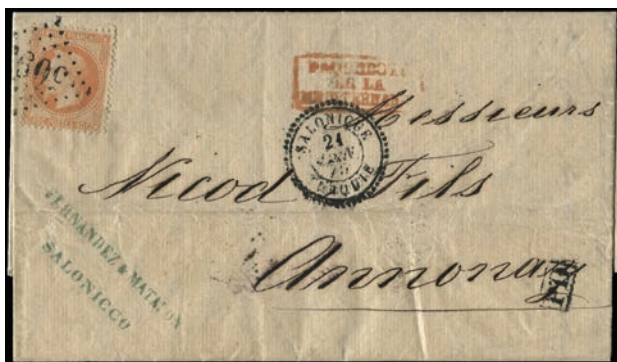 PAQUEBOTS
DE LA
MEDITERRANEE
SALONIQUE
21
JANV
75
TURQUIE
Messieurs
Nicod Fils
Annonay
FERNANDEZ & MATALON
SALONICCO
PD